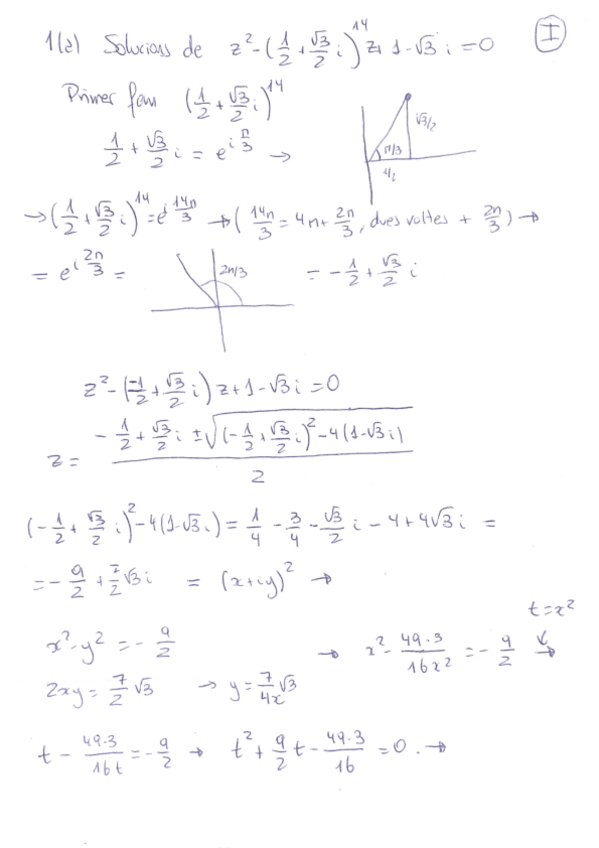 1(a) Solucions de z² - (1/2 + √3/2 i)¹⁴ z + 1 - √3 i = 0 I
Primer fem (1/2 + √3/2 i)¹⁴
1/2 + √3/2 i = e^{i π/3} →
√3/2
π/3
→ (1/2 + √3/2 i)¹⁴ = e^{i 14π/3} → (14π/3 = 4π + 2π/3, dues voltes + 2π/3) →
= e^{i 2π/3} = 2π/3 = -1/2 + √3/2 i
z² - (-1/2 + √3/2 i) z + 1 - √3 i = 0
z = (-1/2 + √3/2 i ± √((-1/2 + √3/2 i)² - 4(1 - √3 i))) / 2
(-1/2 + √3/2 i)² - 4(1 - √3 i) = 1/4 - 3/4 - √3/2 i - 4 + 4√3 i =
= -9/2 + 7/2 √3 i = (x + iy)² →
t = x²
x² - y² = -9/2 → x² - 49·3/16x² = -9/2 →
2xy = 7/2 √3 → y = 7/4x √3
t - 49·3/16t = -9/2 → t² + 9/2 t - 49·3/16 = 0. →